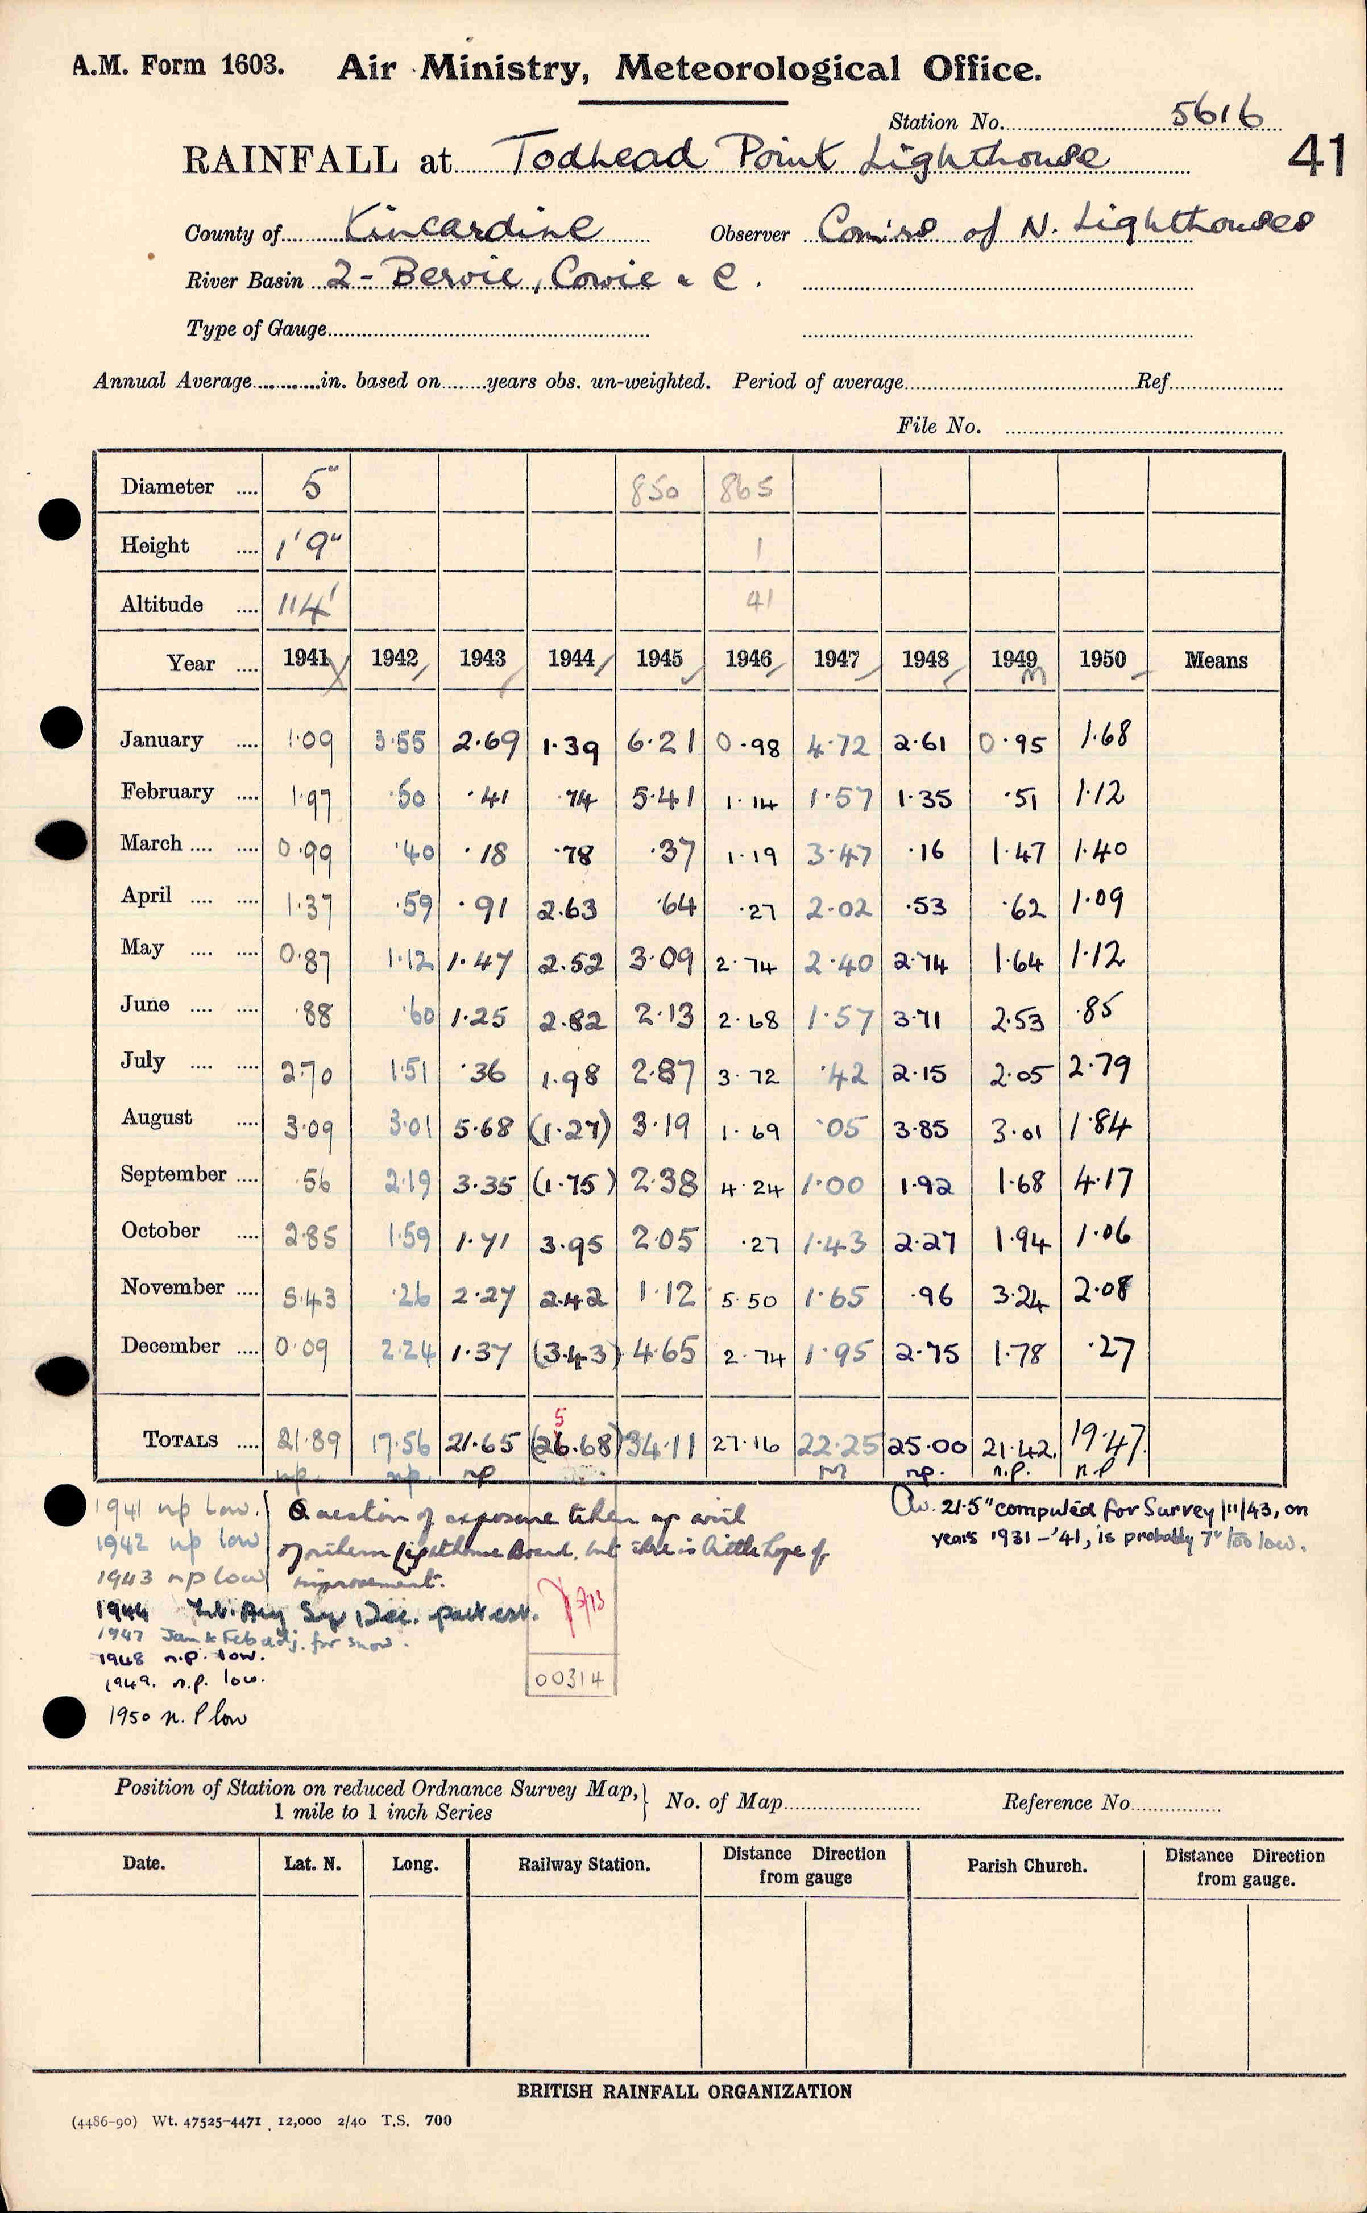 A.M. Form 1603. Air Ministry, Meteorological Office.
Station No. 5616
RAINFALL at Todhead Point Lighthouse 41
County of Kincardine Observer Com'rs of N. Lighthouses
River Basin 2 - Bervie, Cowie & C.
Type of Gauge
Annual Average in. based on years obs. un-weighted. Period of average Ref.
File No.
Diameter 5" 850 865
Height 1' 9" 1
Altitude 114' 41
Year 1941 1942 1943 1944 1945 1946 1947 1948 1949 1950 Means
m
January 1.09 3.55 2.69 1.39 6.21 0.98 4.72 2.61 0.95 1.68
February 1.97 .50 .41 .74 5.41 1.14 1.57 1.35 .51 1.12
March 0.99 .40 .18 .78 .37 1.19 3.47 .16 1.47 1.40
April 1.37 .59 .91 2.63 .64 .27 2.02 .53 .62 1.09
May 0.87 1.12 1.47 2.52 3.09 2.74 2.40 2.74 1.64 1.12
June .88 .60 1.25 2.82 2.13 2.68 1.57 3.71 2.53 .85
July 2.70 1.51 .36 1.98 2.87 3.72 .42 2.15 2.05 2.79
August 3.09 3.01 5.68 (1.27) 3.19 1.69 .05 3.85 3.01 1.84
September .56 2.19 3.35 (1.75) 2.38 4.24 1.00 1.92 1.68 4.17
October 2.85 1.59 1.71 3.95 2.05 .27 1.43 2.27 1.94 1.06
November 5.43 .26 2.27 2.42 1.12 5.50 1.65 .96 3.24 2.08
December 0.09 2.24 1.37 (3.43) 4.65 2.74 1.95 2.75 1.78 .27
5
TOTALS 21.89 17.56 21.65 (26.68) 34.11 27.16 22.25 25.00 21.42 19.47
np. np. np m np. n.p. n.p
1941 np low. Question of exposure taken up with
1942 np low Northern Lighthouse Board, but there is little hope of
1943 np low improvement.
Av. 21.5" computed for Survey 1/11/43, on
years 1931-'41, is probably 7"/00 low.
1944 Aug Sep Dec. part est.
1947 Jan & Feb adj. for snow.
1948 n.p. low.
1949. n.p. low.
00314
1950 n. P low
Position of Station on reduced Ordnance Survey Map, 1 mile to 1 inch Series } No. of Map Reference No.
Date. Lat. N. Long. Railway Station. Distance Direction from gauge Parish Church. Distance Direction from gauge.
BRITISH RAINFALL ORGANIZATION
(4486-90) Wt. 47525-4471 12,000 2/40 T.S. 700